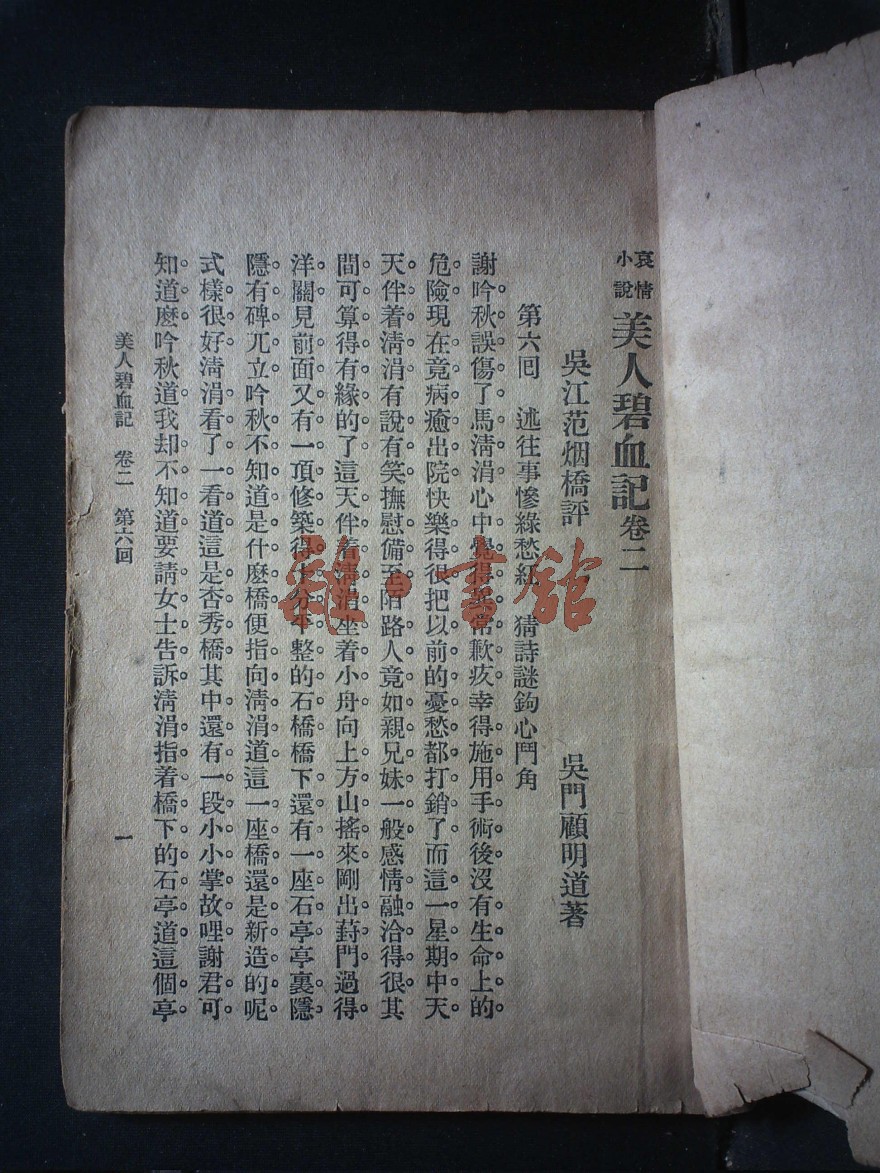 哀情小說 美人碧血記 卷二
吳江范烟橋評 吳門顧明道著
第六回 述往事慘綠愁紅 猜詩謎鉤心鬥角
謝吟秋誤傷了馬淸涓心中覺得異常歉疚幸得施用手術後沒有生命上的
危險現在竟病癒出院快樂得很把以前的憂愁都打銷了而這一星期中天
天伴着淸涓有說有笑撫慰備至陌路人竟如親兄妹一般感情融洽得很其
間可算得有緣的了這天伴着淸涓坐着小舟向上方山搖來剛出葑門過得
洋關見前面又有一項修築得十分平整的石橋橋下還有一座石亭亭裏隱
隱有碑兀立吟秋不知道是什麽橋便指向淸涓道這一座橋還是新造的呢
式樣很好淸涓看了一看道這是杏秀橋其中還有一段小小掌故哩謝君可
知道麽吟秋道我却不知道要請女士告訴淸涓指着橋下的石亭道這個亭
美人碧血記 卷二 第六回 一
雜·書館